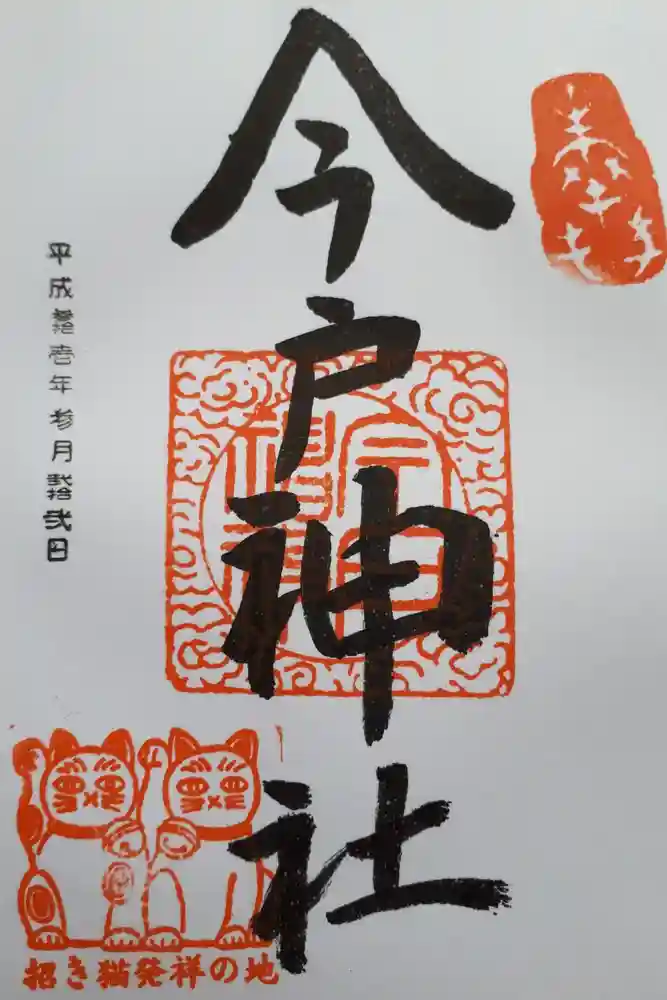 今戸神社
平成参拾壱年参月弐拾弐日
招き猫発祥の地